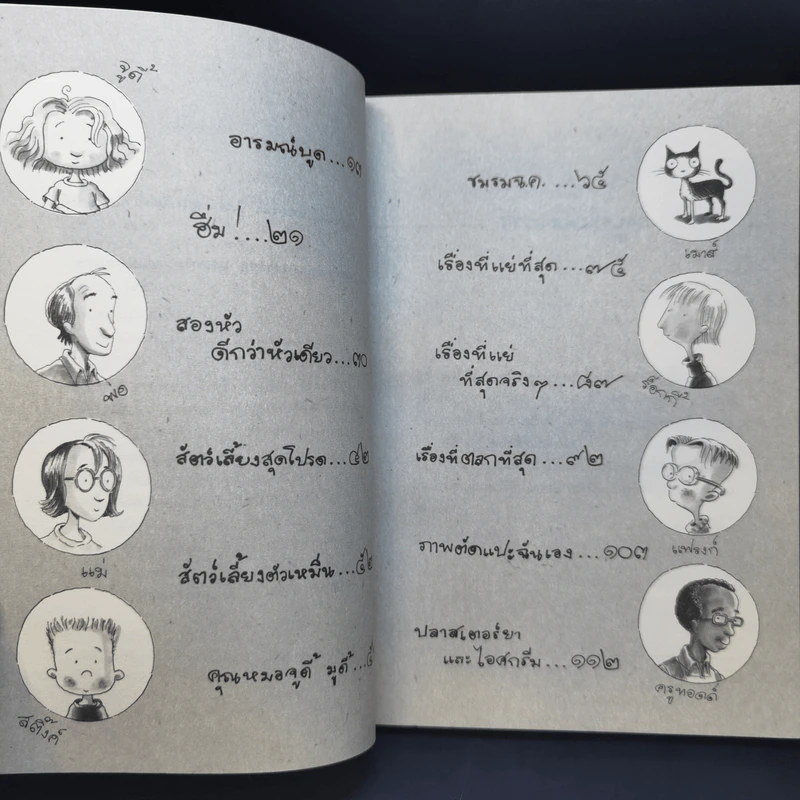 จู้ดี้
อารมณ์บูด...๑๓
ฮึ่ม!....๒๑
พ่อ
สองหัว
ดีกว่าหัวเดียว...๓๐
สัตว์เลี้ยงสุดโปรด...๔๒
แม่
สัตว์เลี้ยงตัวเหม็น...๕๒
คุณหมอจูดี้ มูดี้...
สติ๊งค์
ชมรมฉ.ค. ...๖๕
เมาส์
เรื่องที่แย่ที่สุด...๗๕
เรื่องที่แย่
ที่สุดจริงๆ...๘๗
ร็อกกี้
เรื่องที่ตลกที่สุด...๙๒
ภาพตัดแปะฉันเอง...๑๐๓
แฟรงก์
ปลาสเตอร์ยา
และไอศกรีม...๑๑๒
ครูทอดด์